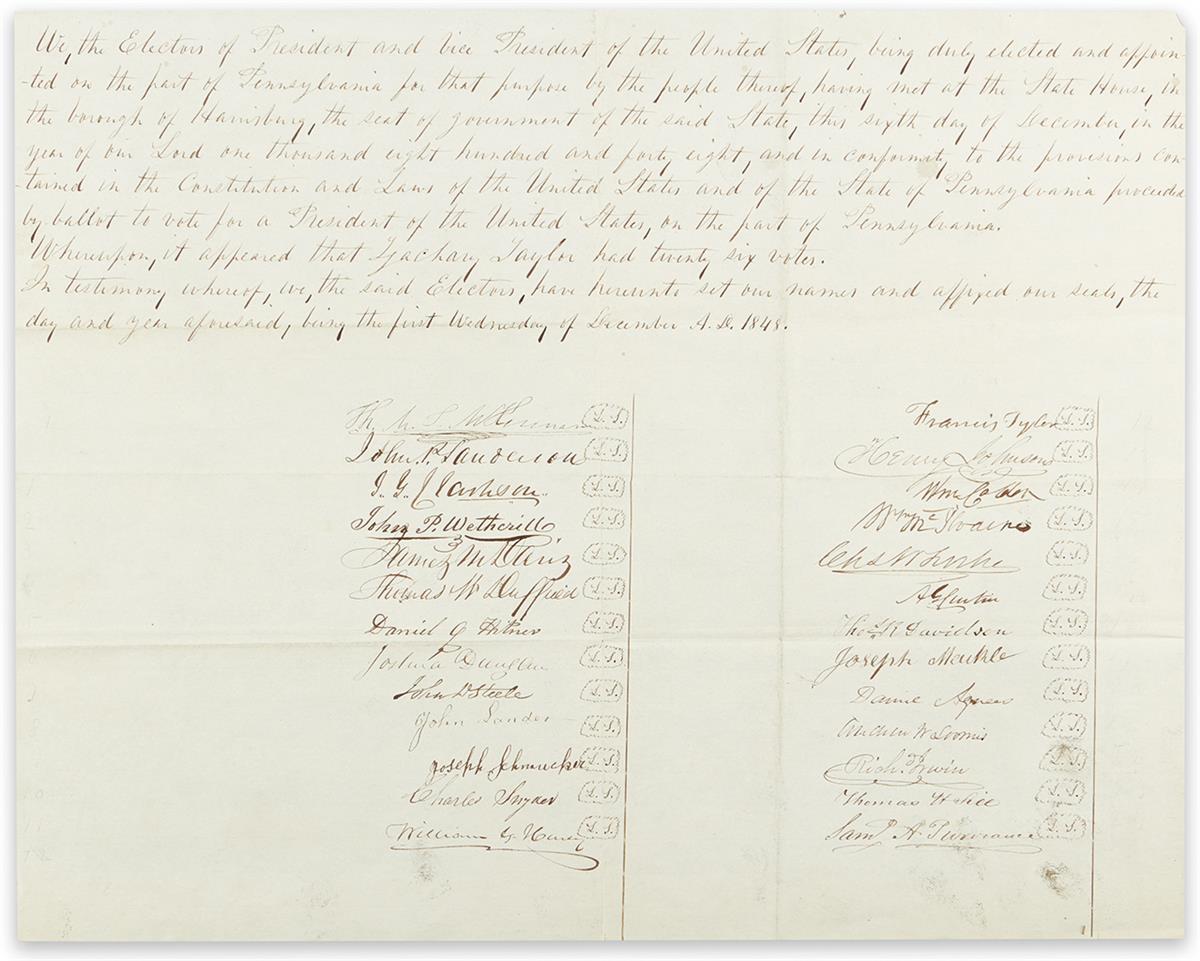 We, the Electors of President and Vice President of the United States, being duly elected and appoin-
-ted on the part of Pennsylvania for that purpose by the people thereof, having met at the State House, in
the borough of Harrisburg, the seat of government of the said State, this sixth day of December, in the
year of our Lord one thousand eight hundred and forty eight, and in conformity to the provisions con-
-tained in the Constitution and Laws of the United States and of the State of Pennsylvania proceeded
by ballot to vote for a President of the United States, on the part of Pennsylvania.
Whereupon, it appeared that Zachary Taylor had twenty six votes.
In testimony whereof, we, the said Electors, have hereunto set our names and affixed our seals, the
day and year aforesaid, being the first Wednesday of December A.D. 1848.
Th. M. T. McKennan L.S.
John P. Sanderson L.S.
J. G. Clarkson L.S.
John P. Wetherill L.S.
James M. L.S.
Thomas W Duffield L.S.
Daniel O Hitner L.S.
Joshua Dungan L.S.
John D Steele L.S.
John Lander L.S.
Joseph Schmucker L.S.
Charles Snyder L.S.
William G. Hurley L.S.
Francis Tyler L.S.
Henry Johnson L.S.
Wm Colder L.S.
Wm McIlvaine L.S.
Chas W L.S.
A G Curtin L.S.
Thos. R Davidson L.S.
Joseph Markle L.S.
Daniel Agnew L.S.
Andrew W Loomis L.S.
Richd. Irwin L.S.
Thomas H Sill L.S.
Saml. A. Purviance L.S.